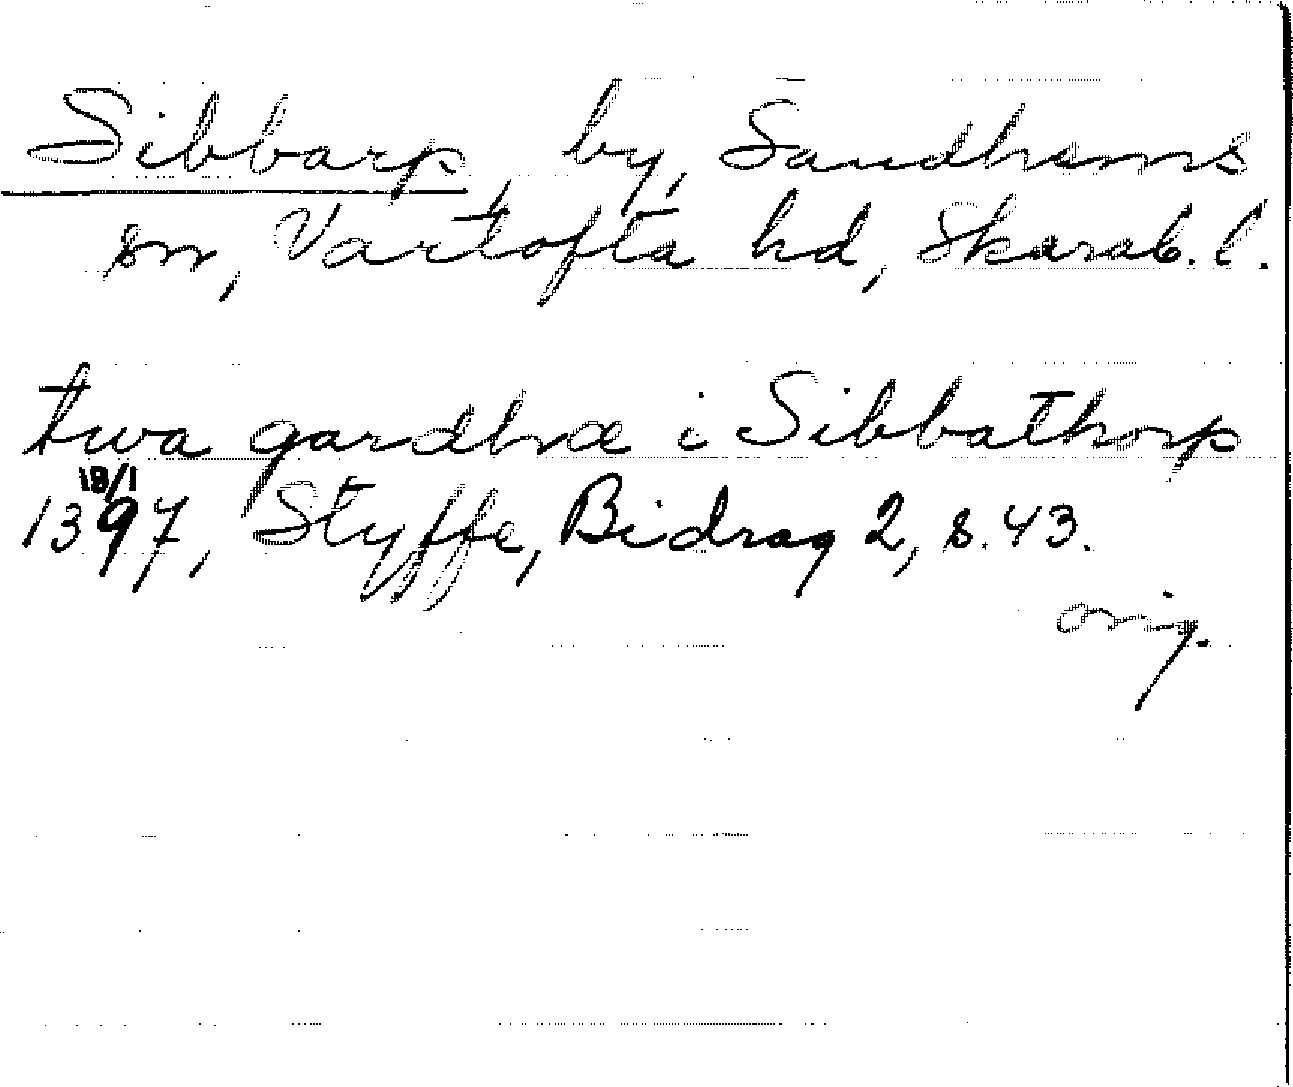 Sibbarp, by, Sandhems
sn, Vartofta hd, Skarab. l.
twa gardhæ i Sibbathorp
18/1
1397, Styffe, Bidrag 2, s. 43.
orig.